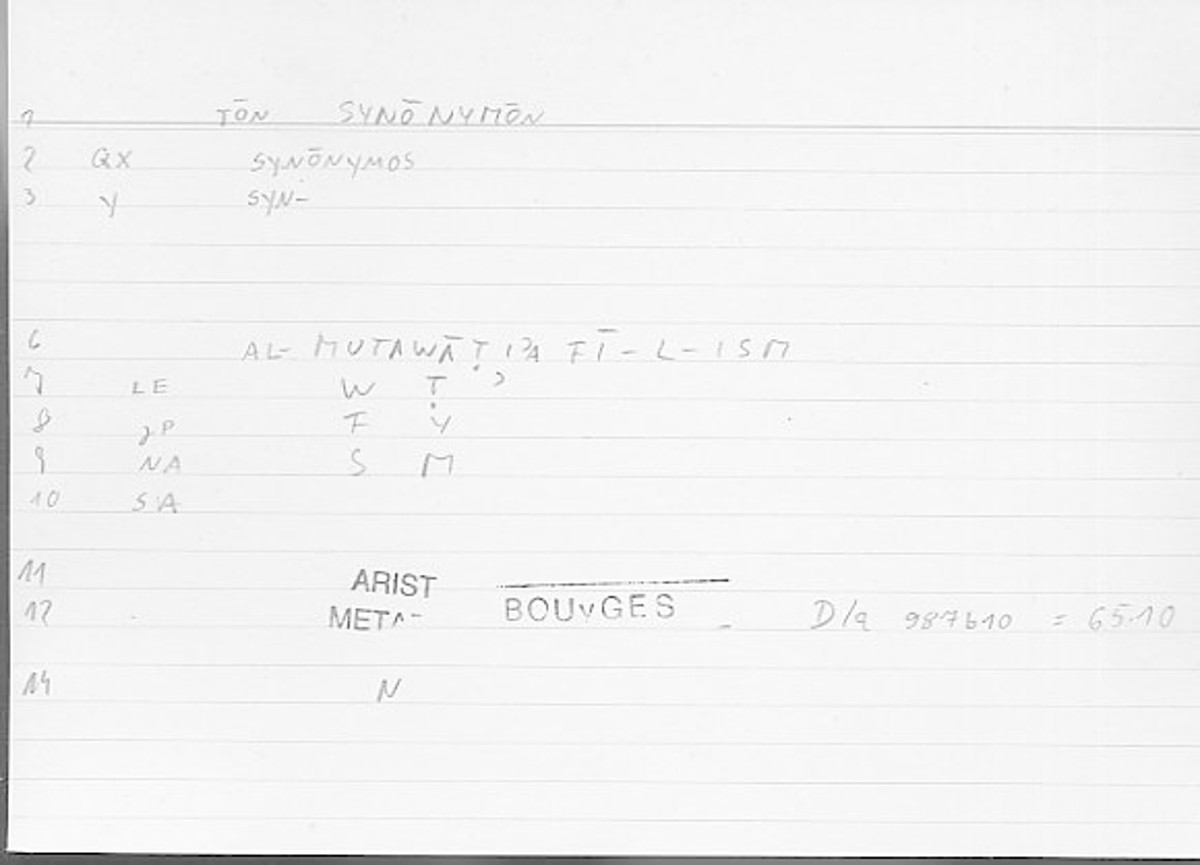 1 TŌN SYNŌNYMŌN
2 QX SYNŌNYMOS
3 Y SYN-
6 AL- MUTAWĀṬIʾA FĪ-L-ISM
7 LE W Ṭ ʾ
8 JP F Y
9 NA S M
10 SA
11 ARIST
12 META- BOUYGES D/a 987b10 = 65.10
14 N